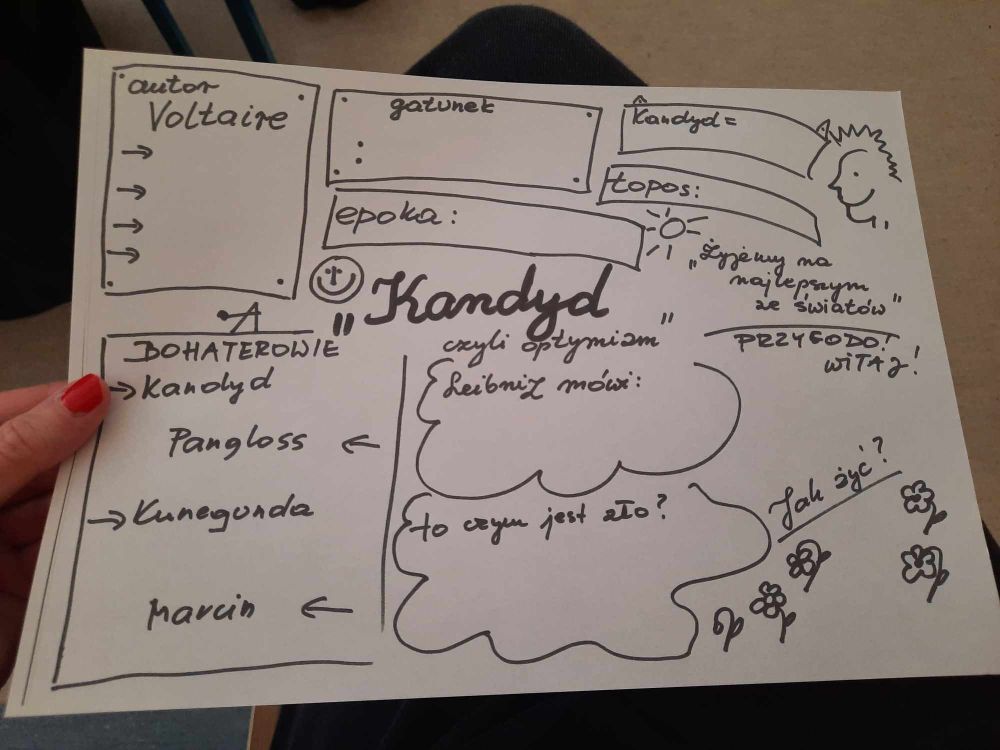 autor
Voltaire
gatunek
Kandyd =
topos:
epoka:
„Żyjemy na
najlepszym
ze światów"
„Kandyd
czyli optymizm"
PRZYGODO!
WITAJ!
BOHATEROWIE
Kandyd
Pangloss
Kunegunda
Marcin
Leibniz mówi:
to czym jest zło?
Jak żyć?